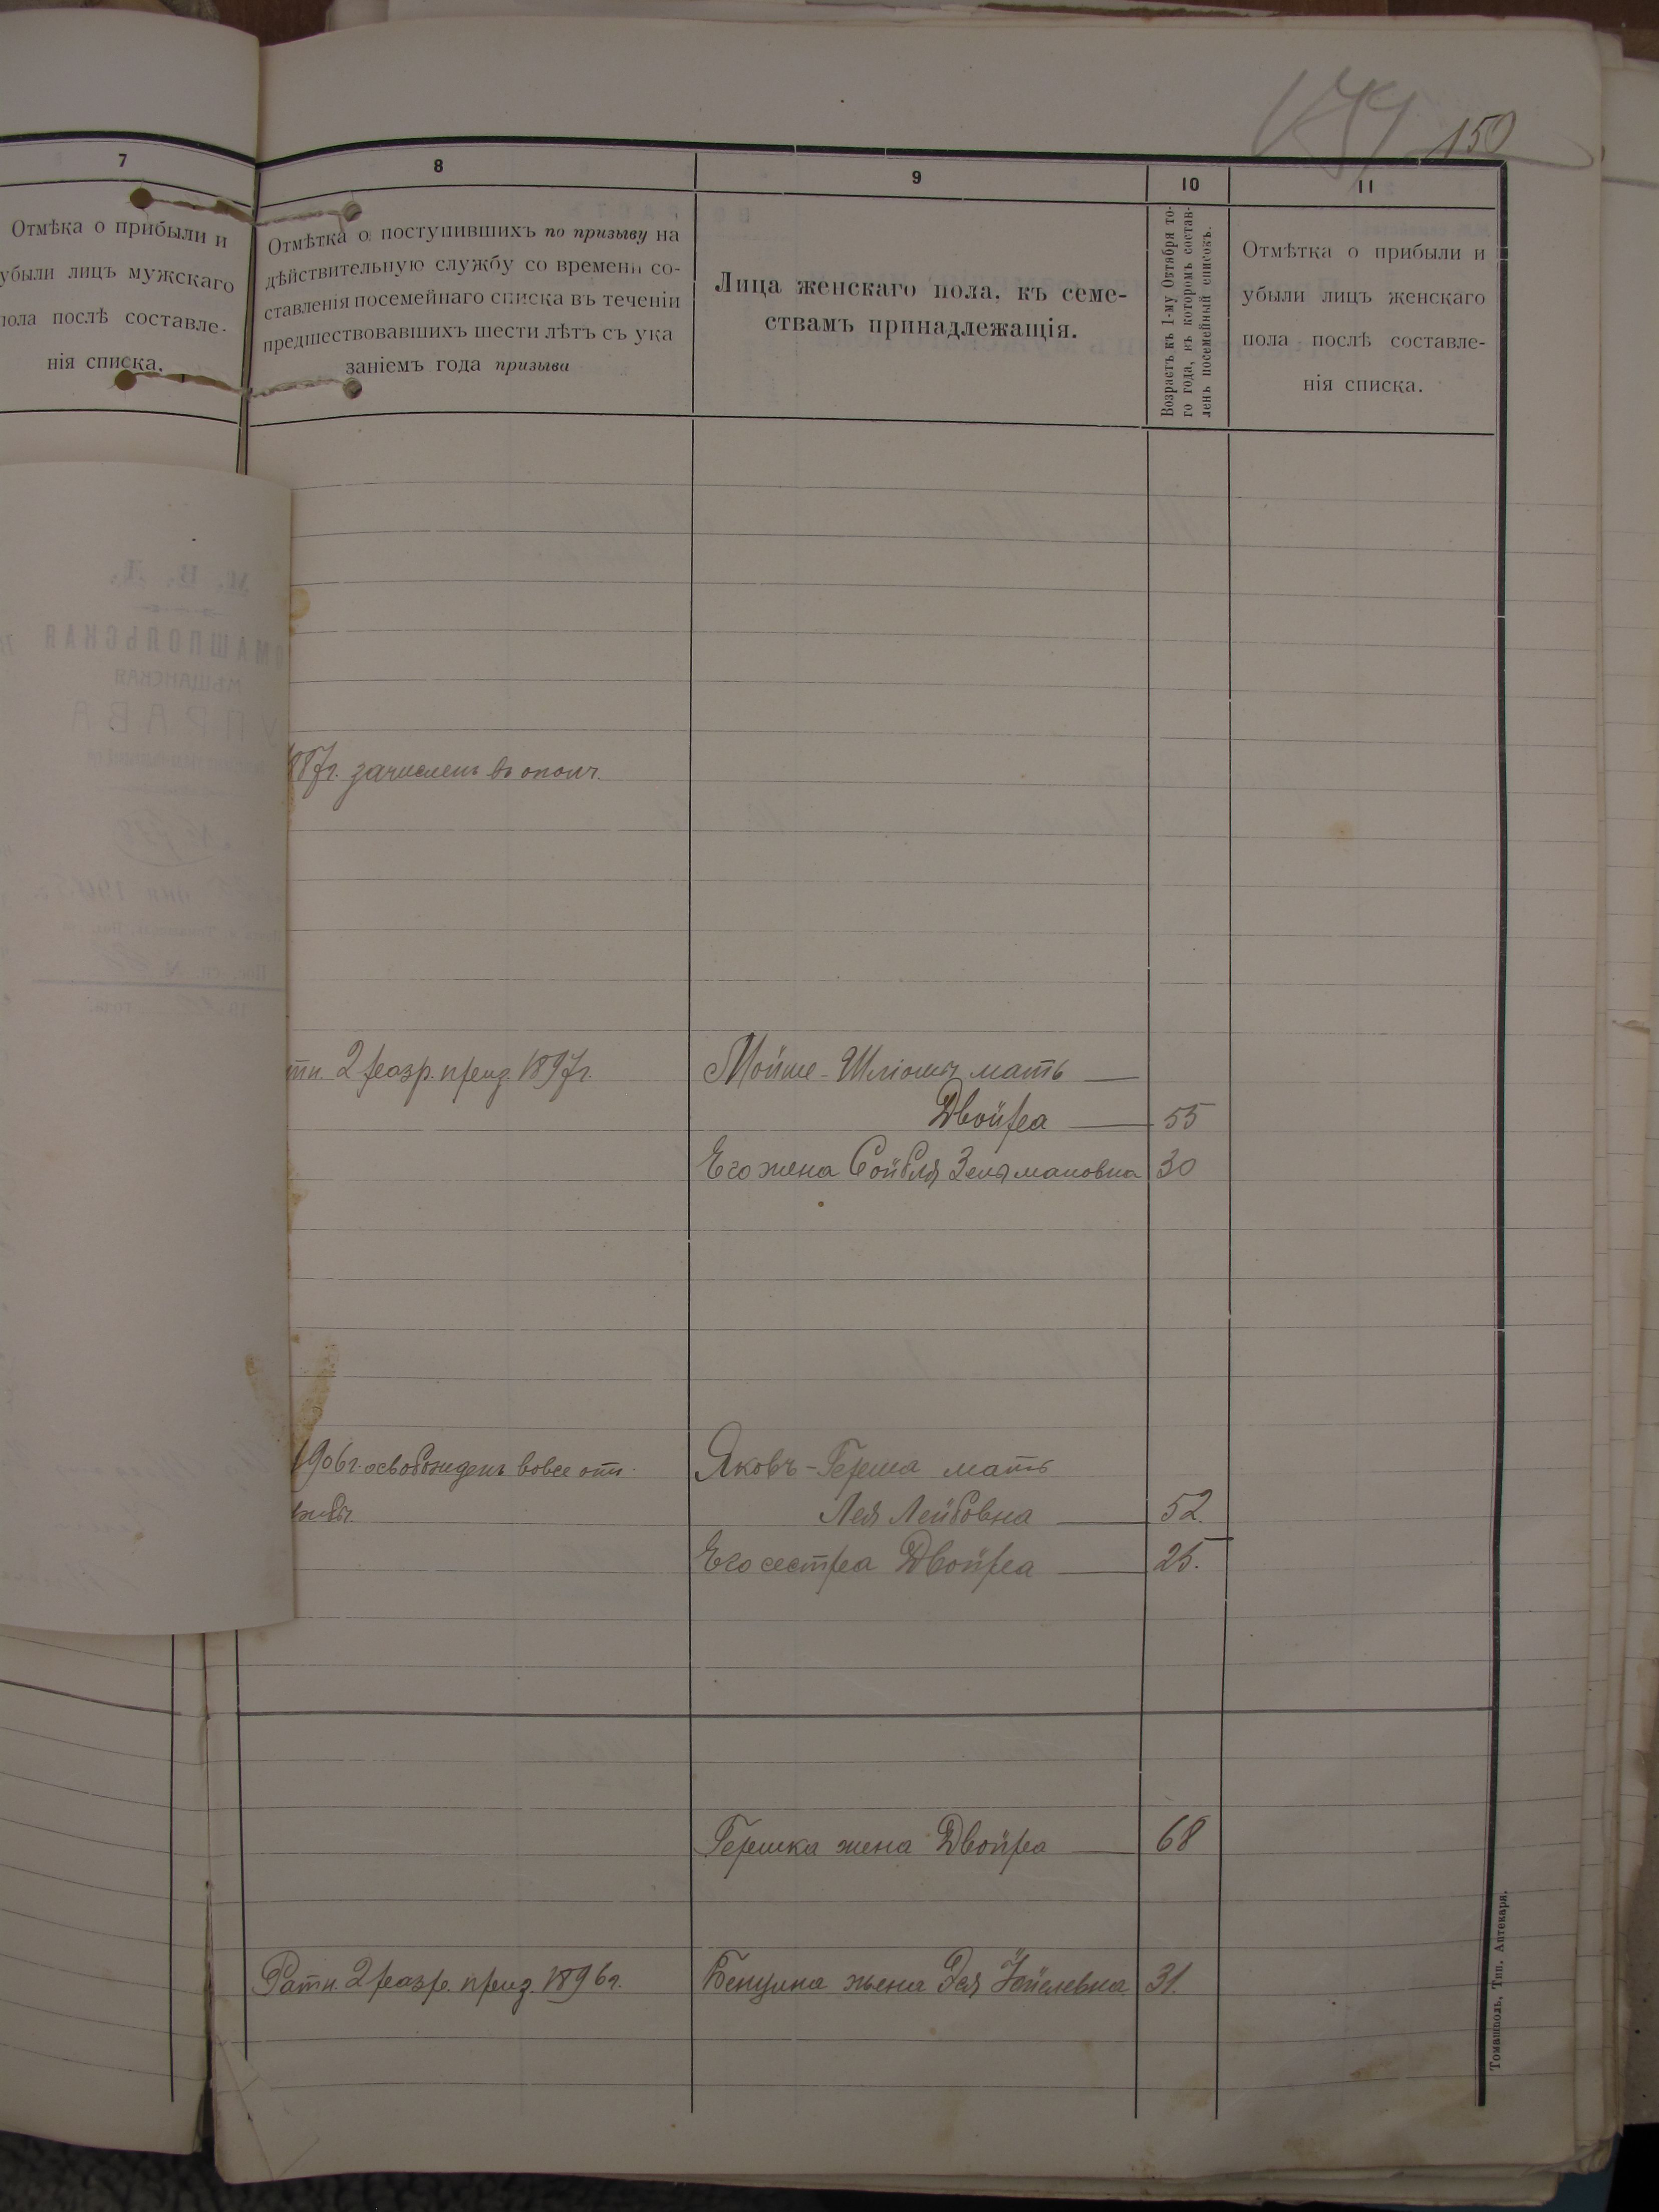 150
7
8
9
10
11
Отмѣка о прибыли и
убыли лицъ мужскаго
пола послѣ составле-
нія списка.
Отмѣтка о поступившихъ по призыву на
дѣйствительную службу со времени со-
ставленія посемейнаго списка въ теченіи
предшествовавшихъ шести лѣтъ съ ука
заніемъ года призыва
Лица женскаго пола, къ семе-
ствамъ принадлежащія.
Возрастъ къ 1-му Октября то-
го года, къ которомъ состав-
ленъ посемейный списокъ.
Отмѣтка о прибыли и
убыли лицъ женскаго
пола послѣ составле-
нія списка.
М. В. Д.
МАШПОЛЬСКАЯ
МѢЩАНСКАЯ
УПРАВА
887г. зачисленъ въ ополч.
тн. 2 разр. приз. 1897г.
Мойше-Шліомы мать
Двойра 55
Его жена Сойбля Зельмановна 30
1906г. освобожденъ вовсе отъ
Яковъ-Герша мать
Лея Лейбовна 52.
Его сестра Двойра 25.
Гершка жена Двойра 68
Ратн. 2 разр. приз. 1896г.
Бенціона жена 31.
Томашполь, Тип. Аптекаря.